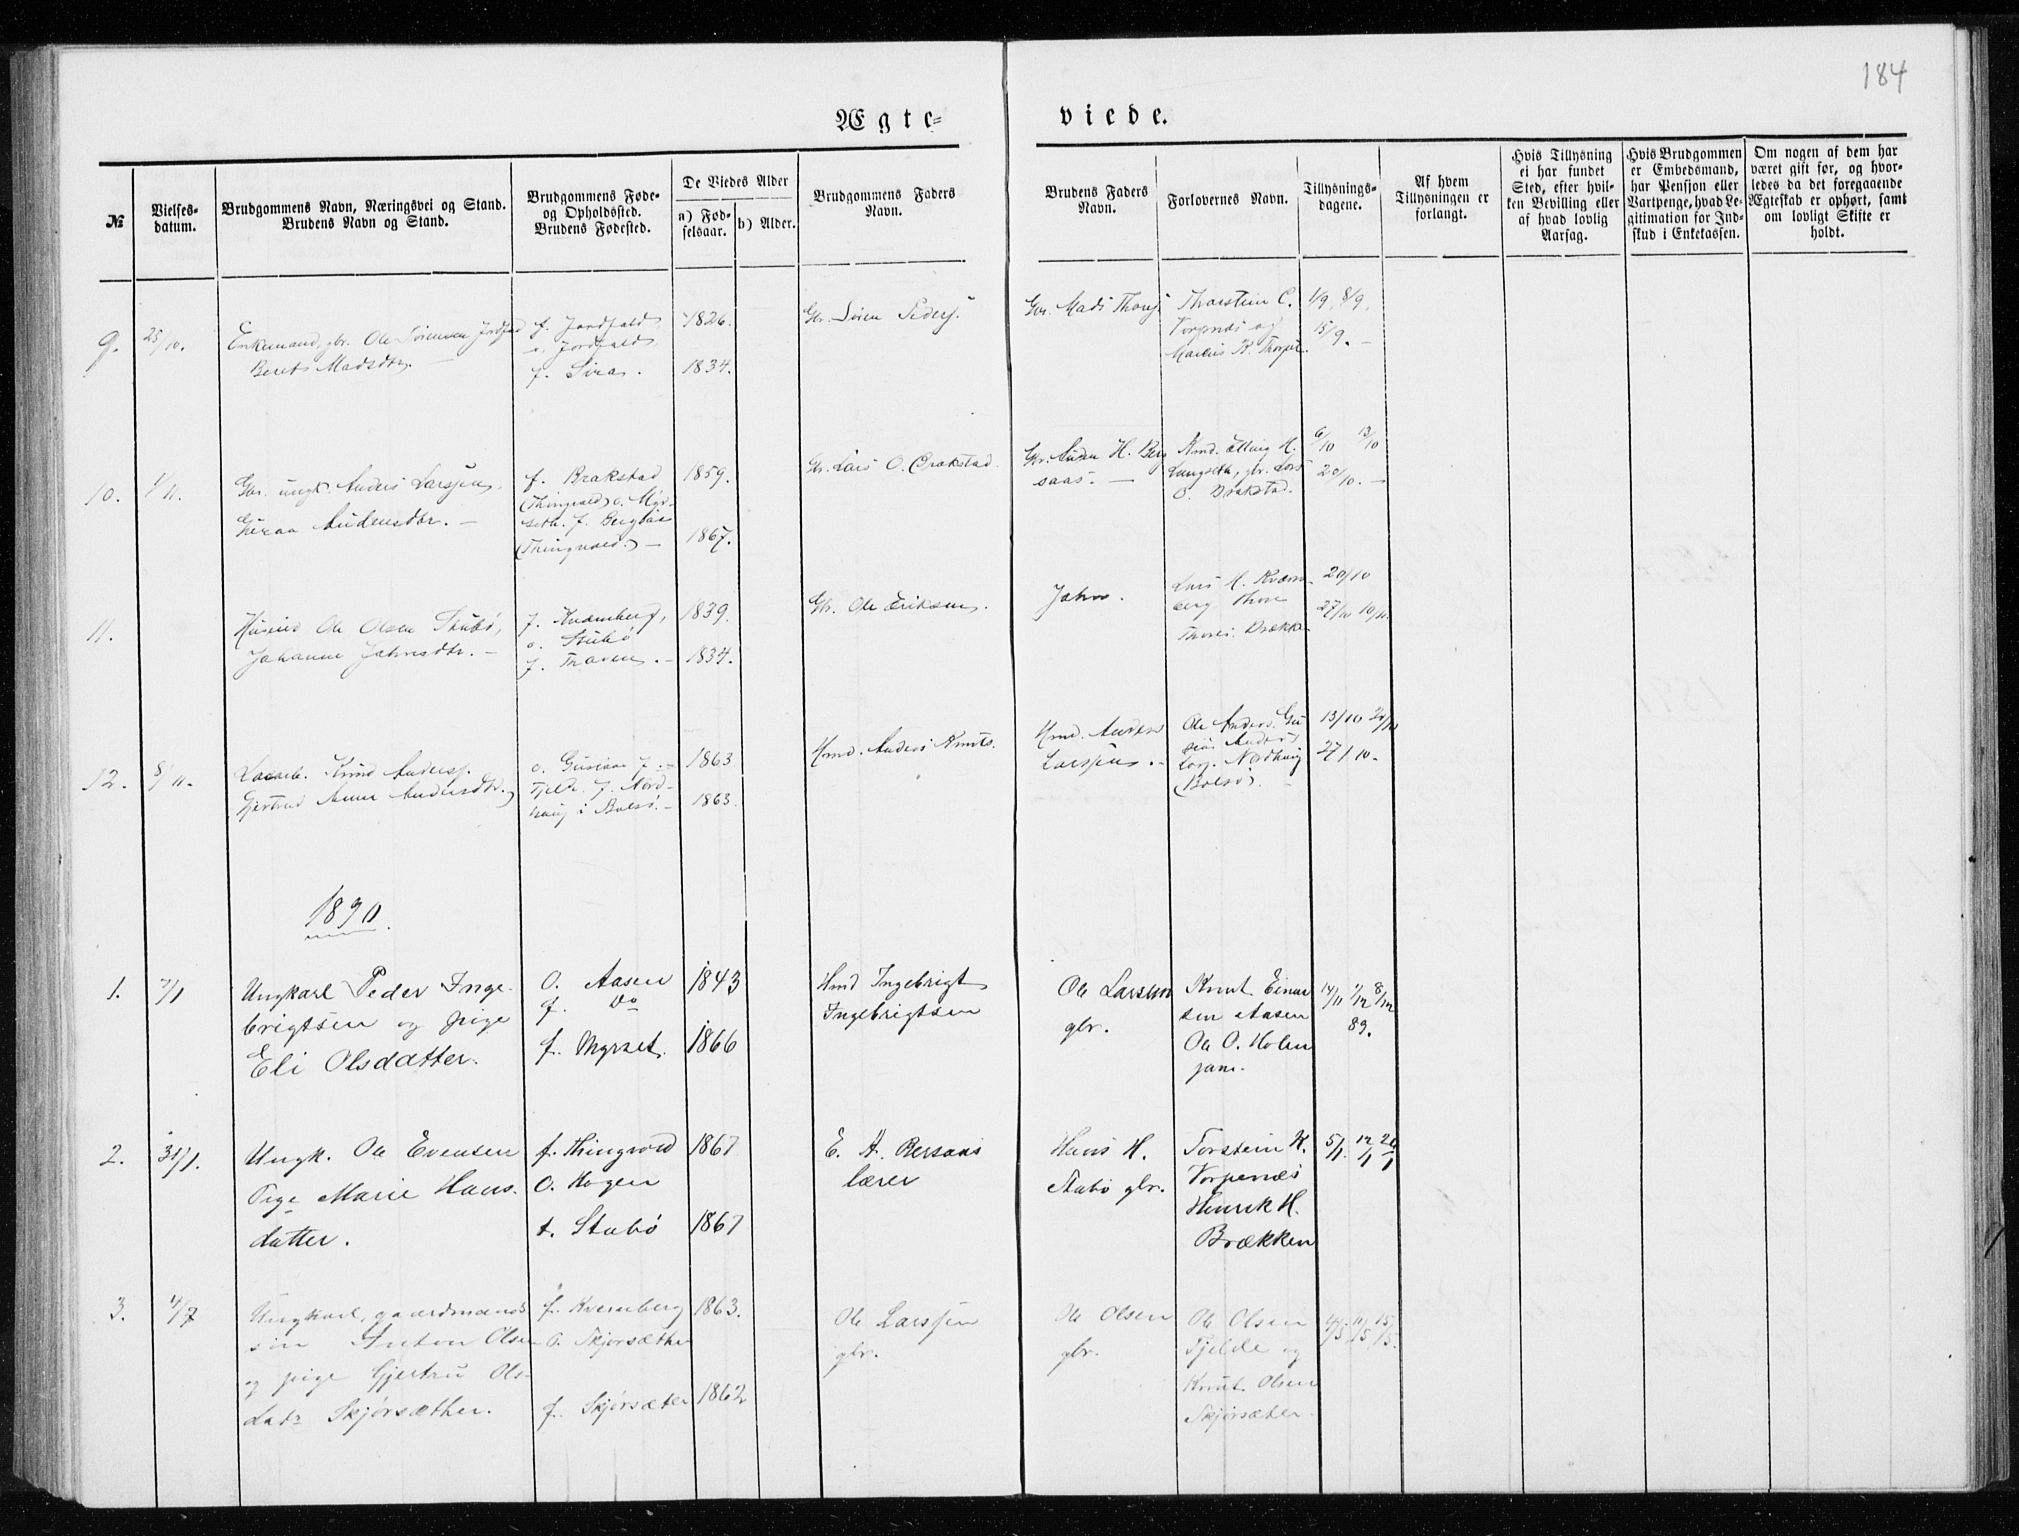 184
Ægte-
viede.
№
Vielses-
datum.
Brudgommens Navn, Næringsvei og Stand.
Brudens Navn og Stand.
Brudgommens Føde-
og Opholdssted.
Brudens Fødested.
De Viedes Alder
a) Fød-
selsaar.
b) Alder.
Brudgommens Faders
Navn.
Brudens Faders
Navn.
Forlovernes Navn.
Tillysnings-
dagene.
Af hvem
Tillysningen er
forlangt.
Hvis Tillysning
ei har fundet
Sted, efter hvil-
ken Bevilling eller
af hvad lovlig
Aarsag.
Hvis Brudgommen
er Embedsmand,
har Pension eller
Vartpenge, hvad Le-
gitimation for Ind-
skud i Enkekassen.
Om nogen af dem har
været gift før, og hvor-
ledes da det foregaaende
Ægteskab er ophørt, samt
om lovligt Skifte er
holdt.
9.
25/10.
Enkemand, gbr. Ole Sörensen
Beret Madsdtr.
f. Jordfald
o. Jordfald
f. Sira.
1826.
1834.
Gbr. Sören Peders.
Gbr. Mads
Thorstein C.
Vorpenæs og
1/9. 8/9.
15/9.
10.
4/11.
Gbr. ungk. Anders Larssen.
Guraa Audensdtr.
f. Brakstad
(Thingvold) o. Myr-
seth. f. Bergsaas
(Thingvold.)
1859.
1867.
Gbr. Lars O. Brakstad.
Gbr. Auden H. Berg
saas.
Kmd. Elling H.
Langseth, gbr. Lars
O. Brakstad.
6/10 13/10
20/10.
11.
Husmd Ole Olsen Stubö,
Johanne Johnsdtr.
f. Kvernberg,
o. Stubö
f.
1839.
1834.
Gbr. Ole Eriksen.
John.
Lars H. Kværn-
berg Thore
Thores. Brække
20/10
27/10 10/11.
12.
8/11.
Knud Anders.
Gjertrud Anne Andersdtr.
o. Gusiaas f.
Fjelde. f. Nord-
haug i Bolsö.
1863
1863.
Hmd. Anders Knuts.
Hmd. Anders
Larssen.
Ole Anders. Gu
siaas Anders
Lars. Nordhaug
(Bolsö).
13/10 20/10
27/10.
1890.
1.
7/1
Ungkarl Peder Inge-
brigtsen og pige
Eli Olsdatter.
O. Aasen
f. Do
f. Myrset.
1843
1866
Hmd Ingebrigt
Ingebrigtsen
Ole Larssen
gbr.
Knut Einar
sen Aasen
Ole O. Holen
1/12 8/12
89.
2.
31/1.
Ungk. Ole Evensen
Pige Marie Hans.
datter.
f. Thingvold
O. Hogen
f. Stubø
1867
1867
E. A. Bersaas
lærer
Hans H.
Stubö gbr.
Torstein K.
Vorpenæs
Henrik H.
Brækken
5/1. 12/1 26/1
3.
4/7
Ungkarl, gaardmands
søn Anton Olsen
og pige Gjertru Ols-
datr Skjörsæther.
f. Kvernberg
O. Skjörsæther
f. Skjörsæter
1863.
1862
Ole Larssen
gbr.
Ole Olsen
gbr.
Ole Olsen
Fjelde og
Knut Olsen
Skjörsæter.
4/5 11/5 15/5.